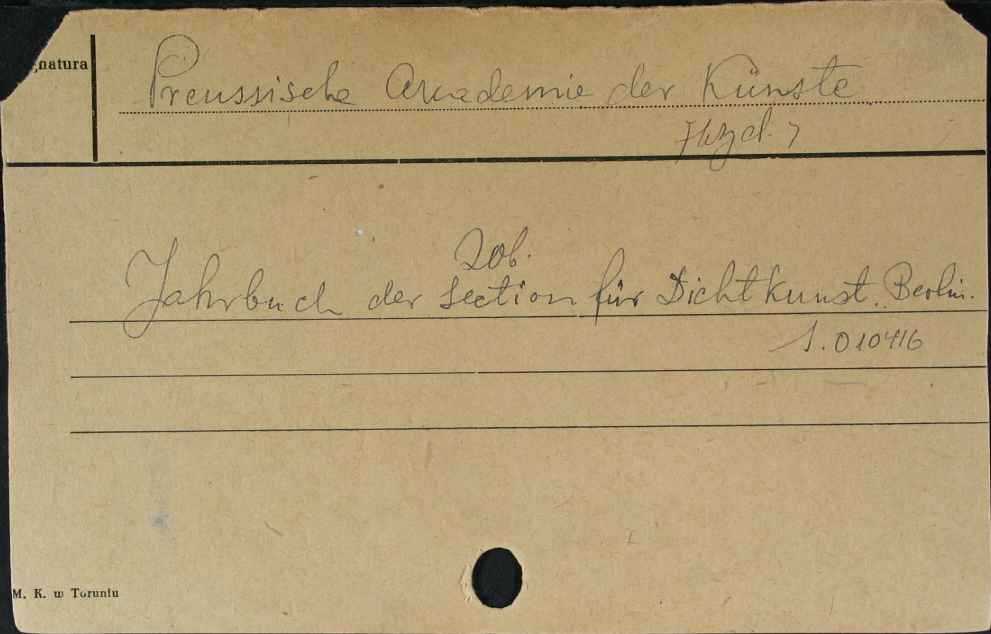 gnatura
Preussische Akademie der Künste
zob.
Jahrbuch der Section für Dichtkunst. Berlin.
1. 010416
M. K. w Toruniu